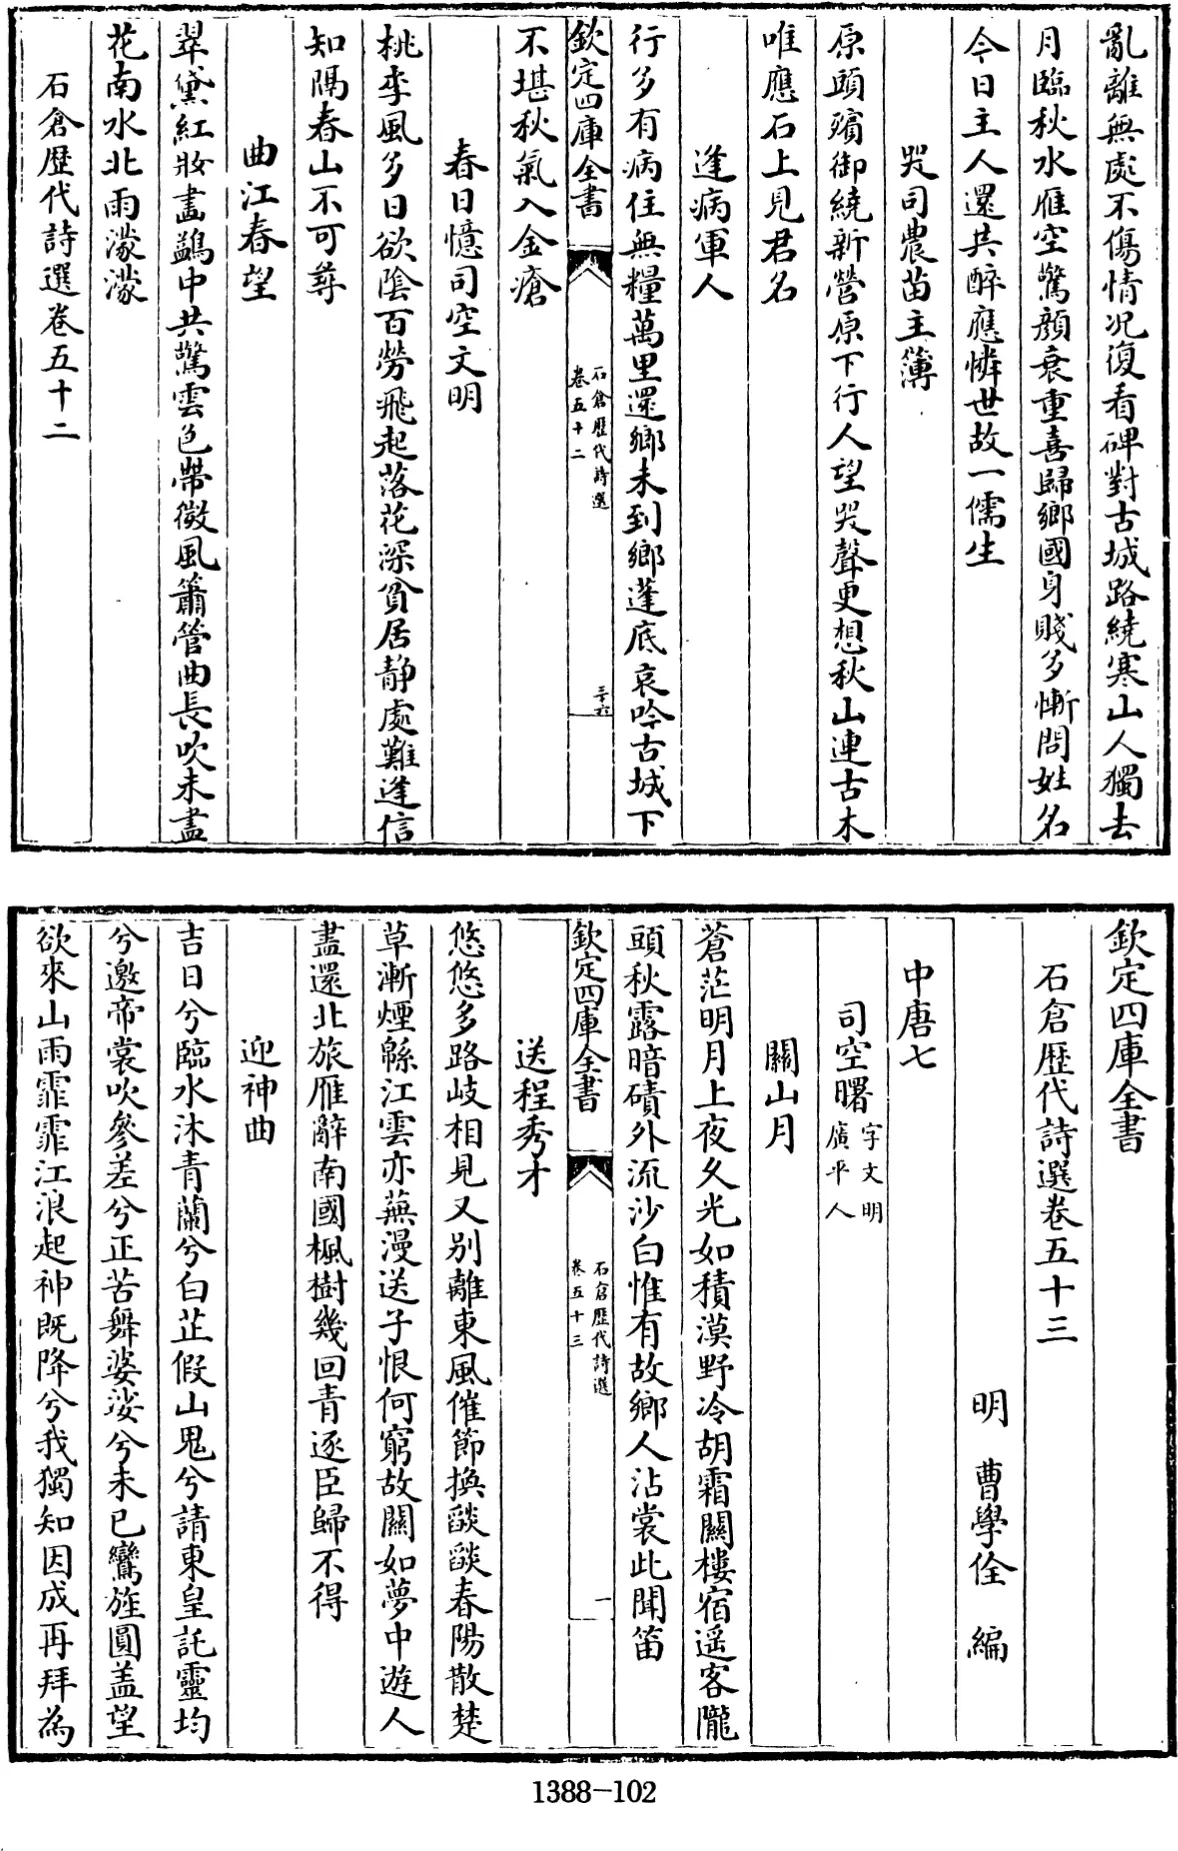 亂離無處不傷情況復看碑對古城路繞寒山人獨去
月臨秋水雁空驚顏衰重喜歸鄉國身賤多慚問姓名
今日主人還共醉應憐世故一儒生
哭司農苗主簿
原頭殯御繞新營原下行人望哭聲更想秋山連古木
唯應石上見君名
逢病軍人
行多有病住無糧萬里還鄉未到鄉蓬底哀吟古城下
欽定四庫全書
石倉歷代詩選
卷五十二
三十六
不堪秋氣入金瘡
春日憶司空文明
桃李風多日欲陰百勞飛起落花深貧居靜處難逢信
知隔春山不可尋
曲江春望
翠黛紅妝畫鷁中共驚雲色帶微風簫管曲長吹未盡
花南水北雨濛濛
石倉歷代詩選卷五十二
欽定四庫全書
石倉歷代詩選卷五十三
明 曹學佺 編
中唐七
司空曙字文明
廣平人
關山月
蒼茫明月上夜久光如積漠野冷胡霜關樓宿遥客隴
頭秋露暗磧外流沙白惟有故鄉人沾裳此聞笛
欽定四庫全書
石倉歷代詩選
卷五十三
一
送程秀才
悠悠多路岐相見又别離東風催節換燄燄春陽散楚
草漸煙緜江雲亦蕪漫送子恨何窮故關如夢中遊人
盡還北旅雁辭南國楓樹幾回青逐臣歸不得
迎神曲
吉日兮臨水沐青蘭兮白芷假山鬼兮請東皇託靈均
兮邀帝裳吹參差兮正苦舞婆娑兮未已鸞旌圓盖望
欲來山雨霏霏江浪起神既降兮我獨知因成再拜為
1388-102